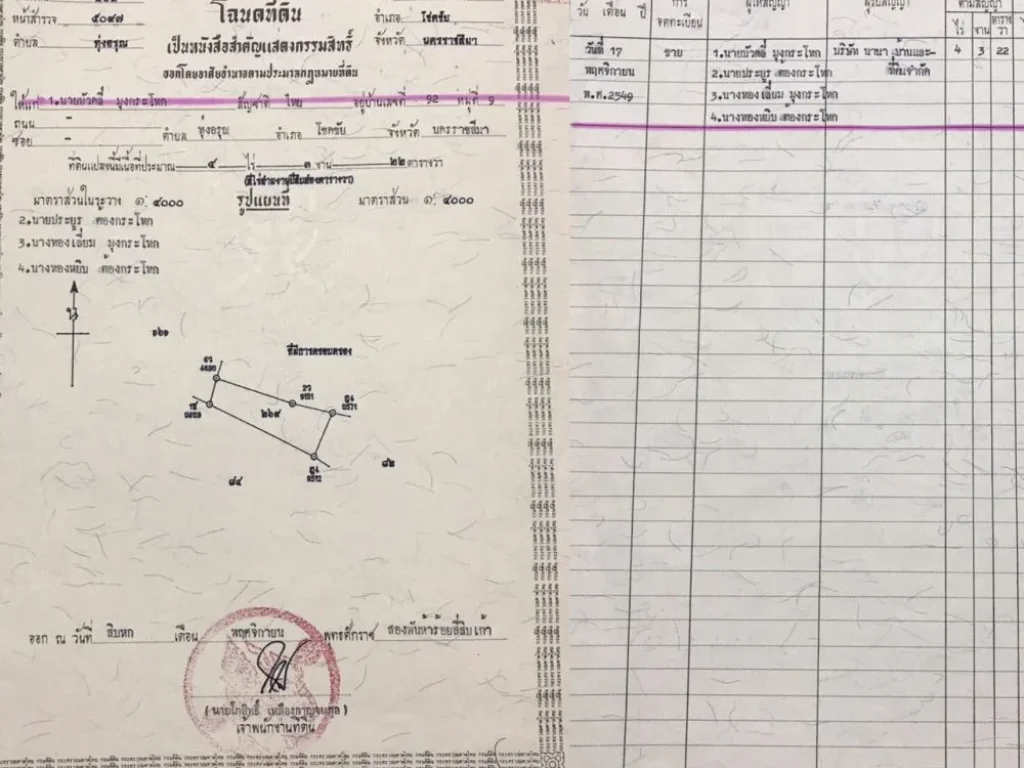 หน้าสำรวจ ๕๐๔๗
โฉนดที่ดิน
อำเภอ โชคชัย
ตำบล ทุ่งอรุณ
เป็นหนังสือสำคัญแสดงกรรมสิทธิ์
จังหวัด นครราชสีมา
ออกโดยอาศัยอำนาจตามประมวลกฎหมายที่ดิน
ให้แก่ 1.นายบัวคลี่ มุงกระโทก สัญชาติ ไทย อยู่บ้านเลขที่ 92 หมู่ที่ 9
ถนน -
ซอย - ตำบล ทุ่งอรุณ อำเภอ โชคชัย จังหวัด นครราชสีมา
ที่ดินแปลงนี้มีเนื้อที่ประมาณ ๔ ไร่ ๓ งาน ๒๒ ตารางวา
(สี่ไร่สามงานยี่สิบสองตารางวา)
มาตราส่วนในระวาง ๑: ๔๐๐๐ รูปแผนที่ มาตราส่วน ๑: ๔๐๐๐
2.นายประยูร ต้องกระโทก
3.นางทองเลี่ยม มุงกระโทก
4.นางทองหยิบ ต้องกระโทก
น
๑๖๑
ที่มีการครอบครอง
๒๖๙
๘๔
๘๒
ออก ณ วันที่ สิบหก เดือน พฤศจิกายน พุทธศักราช สองพันห้าร้อยสี่สิบเก้า
เจ้าพนักงานที่ดิน
วัน เดือน ปี
การจดทะเบียน
ผู้ให้สัญญา
ผู้รับสัญญา
ตามสัญญา
ไร่ งาน ตารางวา
วันที่ 17 ขาย 1.นายบัวคลี่ มุงกระโทก บริษัท นานา บ้านและ- 4 3 22
พฤศจิกายน 2.นายประยูร ต้องกระโทก ที่ดินจำกัด
พ.ศ.2549 3.นางทองเลี่ยม มุงกระโทก
4.นางทองหยิบ ต้องกระโทก